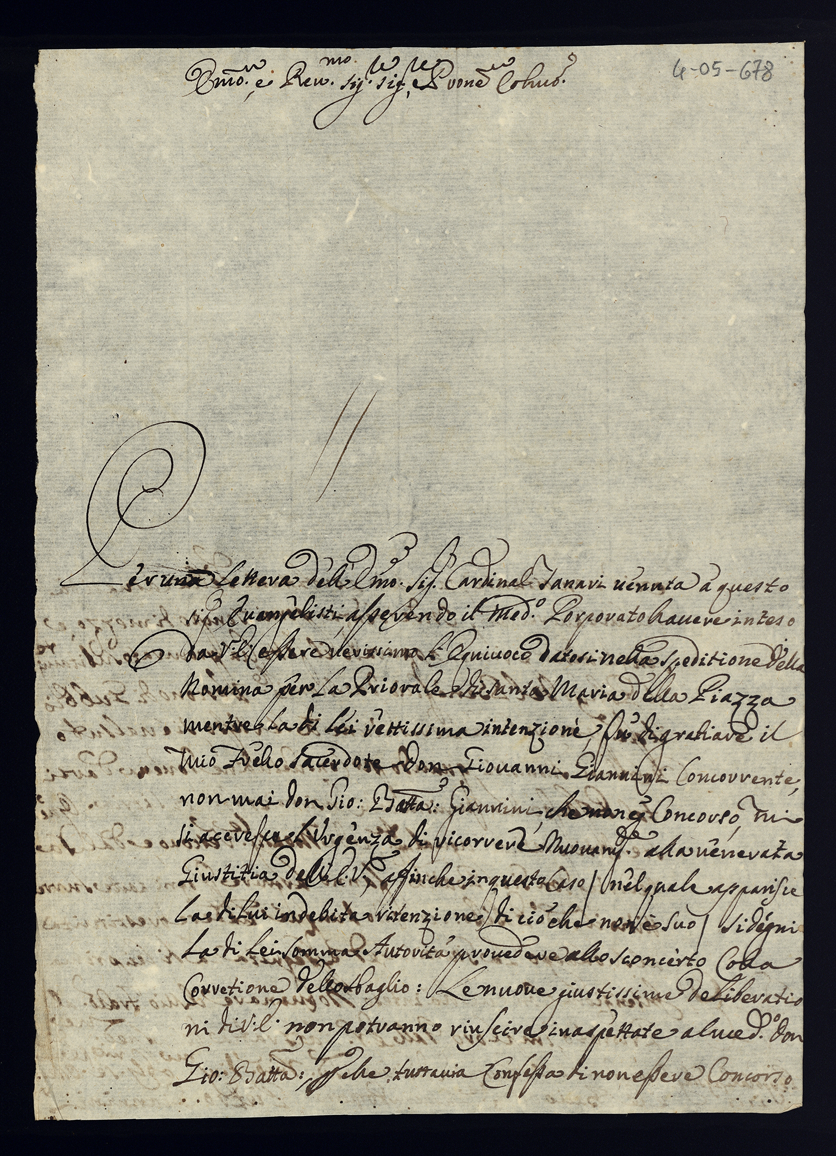 4-05-678
Emo. e Rev.mo sig. sig. e Prone Colmo.
Per una lettera dell' Emo. Sig. Cardinal Tanari venuta à questo
sig. Evangelisti, asserendo il Med.o Porporato havere inteso
da V. E. essere verissimo l'Equivoco datosi nella speditione della
Nomina per La Priorale di santa Maria della Piazza
mentre La di lui rettissima intenzione, fù di gratiare il
mio Frello sacerdote don Giovanni Giannini Concorrente,
non mai don Gio: Batta: Giannini, che non è Concorso, mi
si accresce l'Urgenza di ricorrere Nuovam.te alla venerata
Giustitia dell' E. V. affinche in questo Caso / nel quale apparisce
La di lui indebita ritenzione, di ciò che non è suo / si degni
La di Lei somma Autorità provedere allo sconcerto Colla
Corretione dello sbaglio: Le nuove giustissime deliberatio
ni di V. E. non potranno riuscire inaspettate al med.o don
Gio: Batta:, che tuttavia Confessa di non essere Concorso